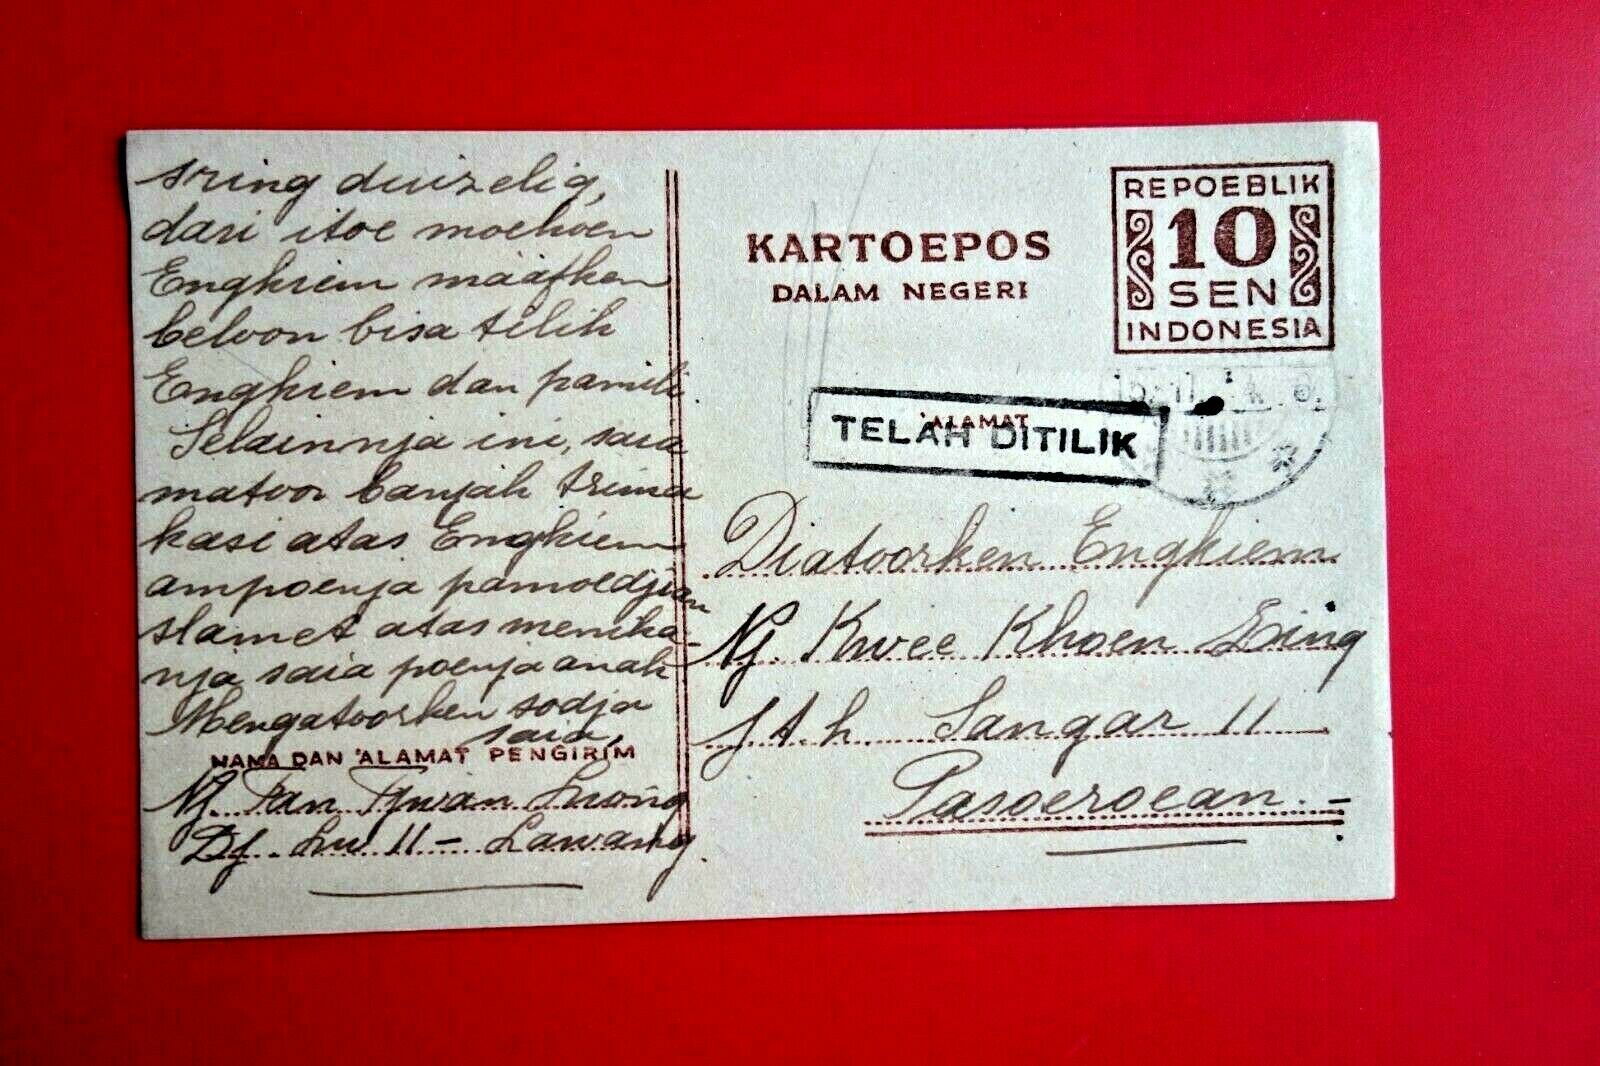 sring duizelig,
dari itoe moehoen
Engkiem määfken
beloon bisa tilik
Engkiem dan pamili
Selainnja ini, saia
matoor banjak trima
kasi atas Engkiem
ampoenja pamoedjian
slamet atas menika-
nja saia poenja anak
Mengatoorken sodja
saia,
NAMA DAN 'ALAMAT PENGIRIM
Nj. Tan Tjwan Liong
Dj. Lw 11 - Lawang.
KARTOEPOS
DALAM NEGERI
REPOEBLIK
10
SEN
INDONESIA
'ALAMAT
TELAH DITILIK
Diatoorken Engkiem
Nj. Kwee Khoen Ling
St. h. Sangar 11
Pasoeroean.-